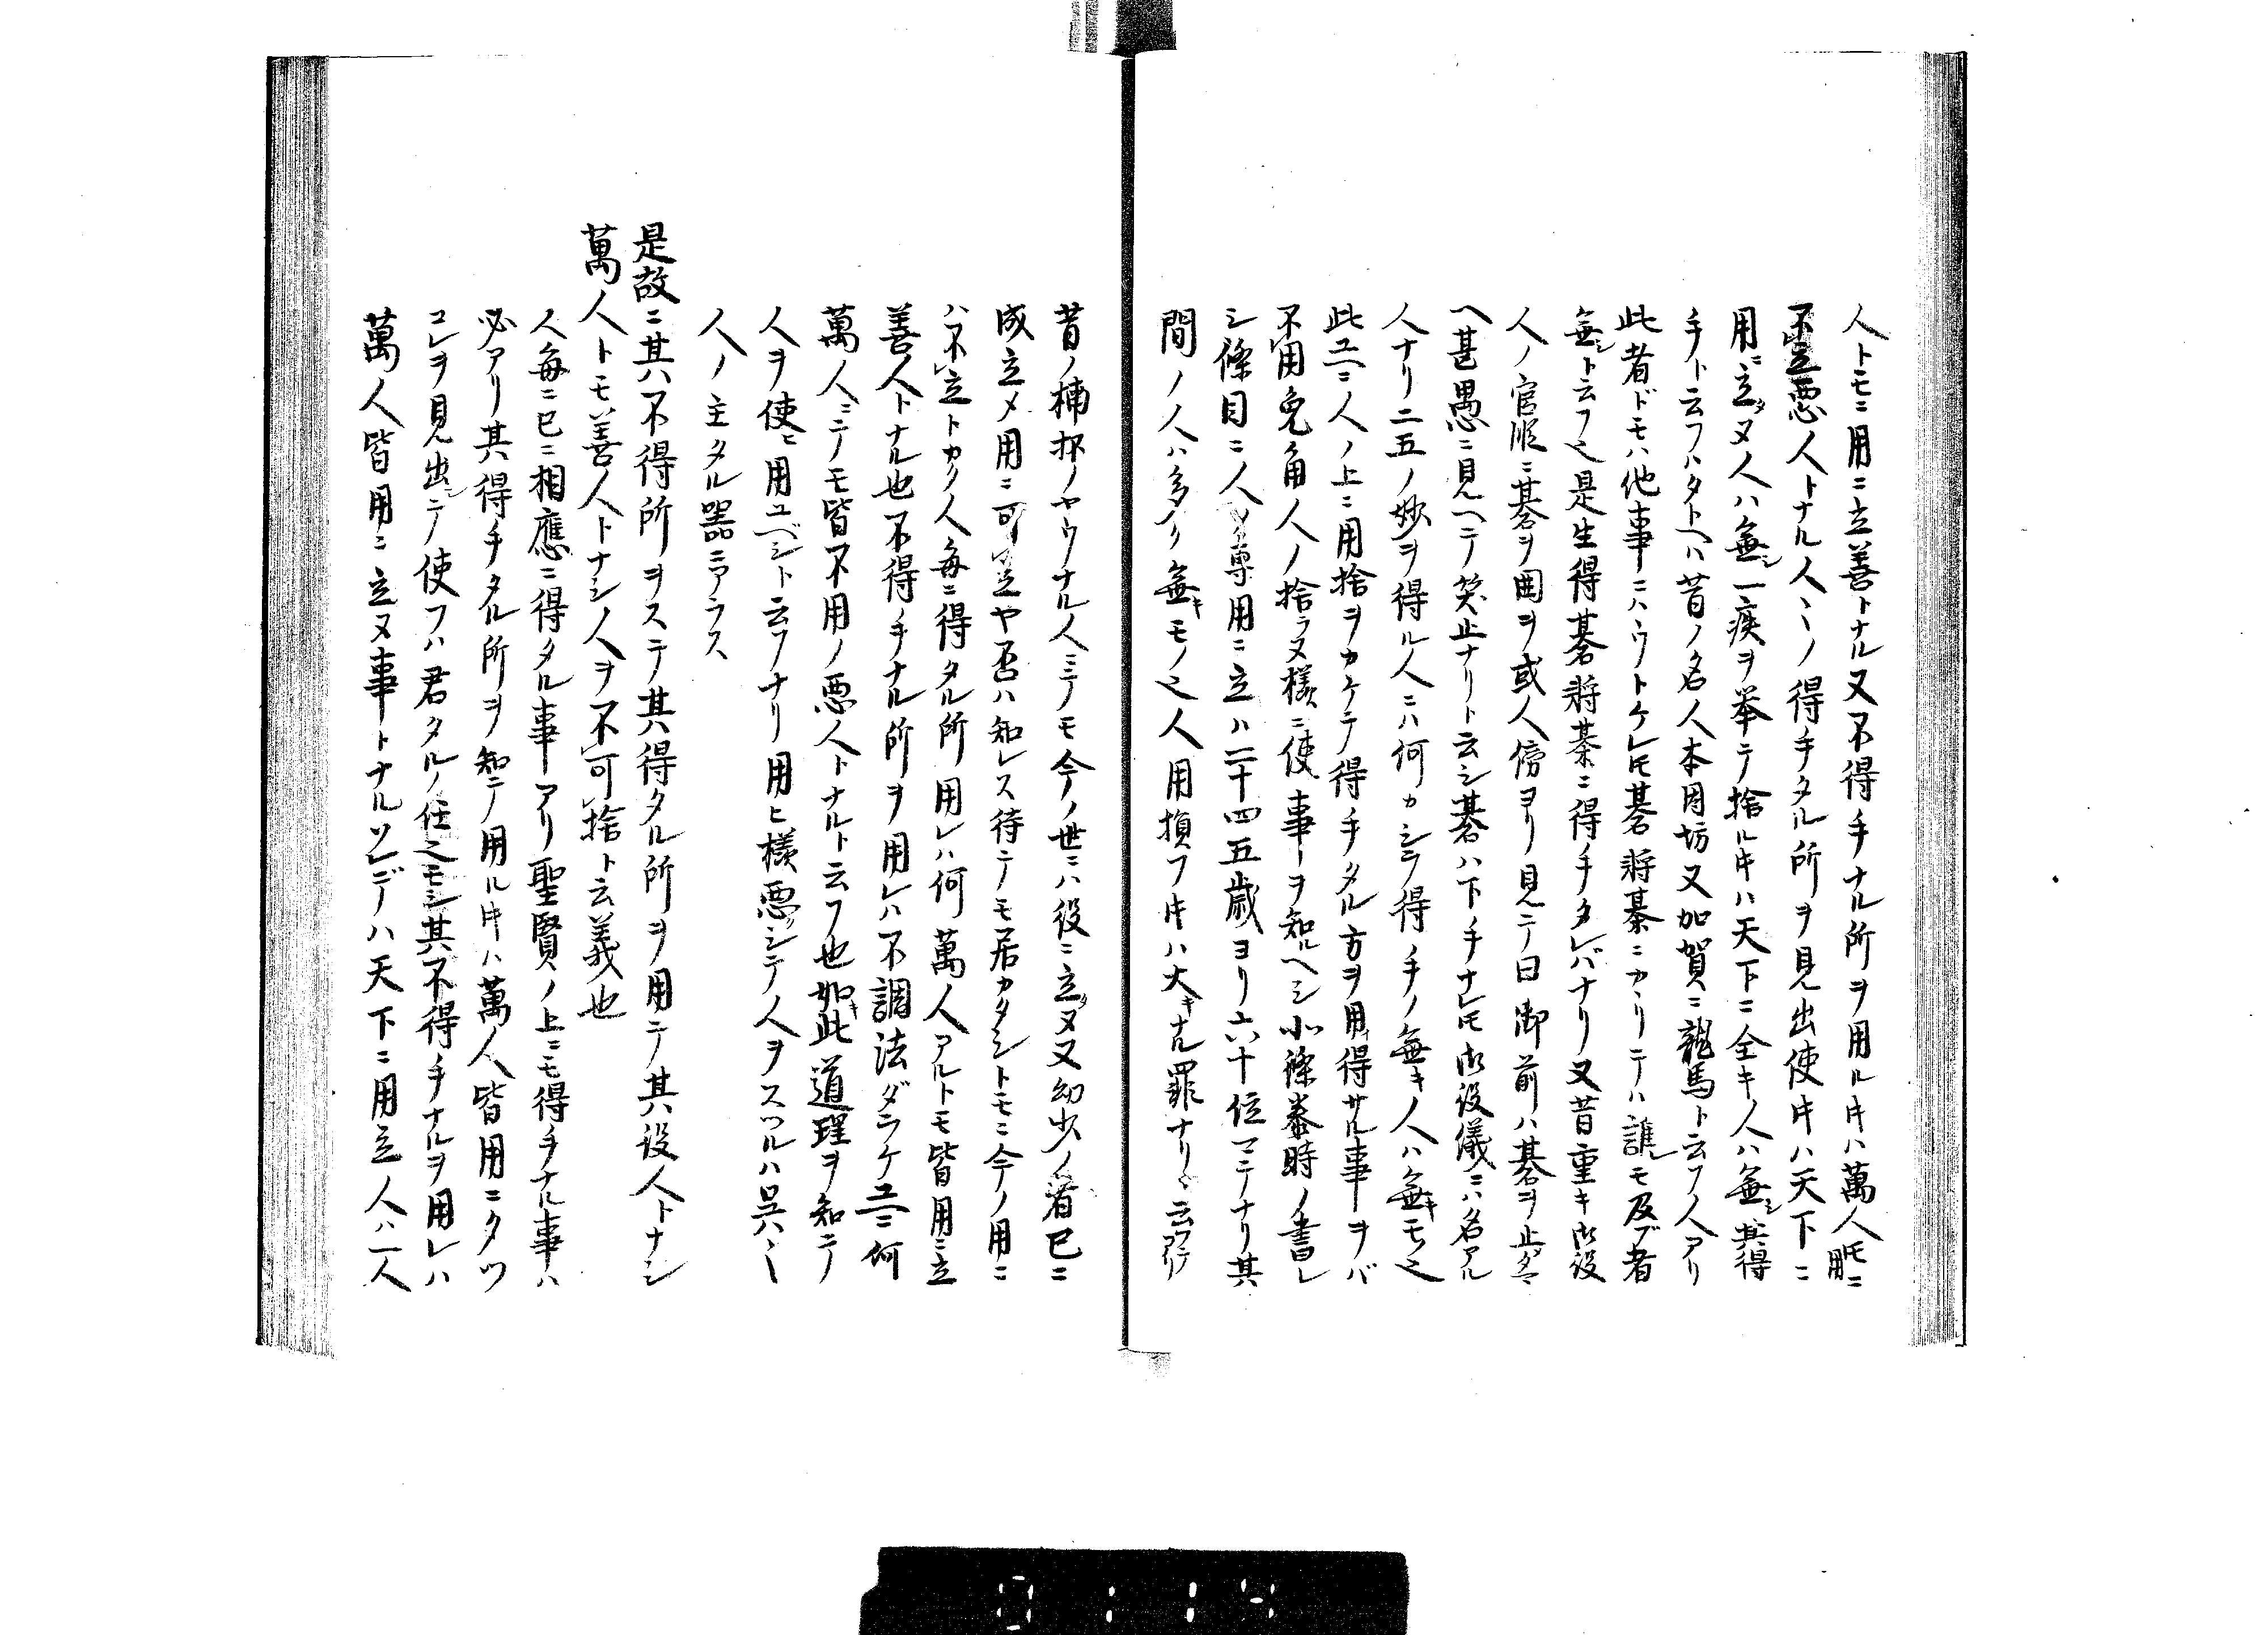 人トモニ用ニ立善トナル又不得手ナル所ヲ用ルキハ萬人𪜈ニ用
不立悪人トナル人〻ノ得手タル所ヲ見出使キハ天下ニ
用ニ立ヌ人ハ無シ一疾ヲ挙テ捨ルキハ天下ニ全キ人ハ無シ其得
手ト云フハタトヘハ昔ノ名人本因坊又加賀ニ龍馬ト云フ人アリ
此者ドモハ他事ニハウトケレ𪜈碁将棊ニカヽリテハ誰レモ及ブ者
無シト云フ之是生得碁将棊ニ得手タレバナリ又昔重キ御役
人ノ官服ニ碁ヲ囲ヲ或人傍ヨリ見テ曰御前ハ碁ヲ止ダマ
ヘ甚愚ニ見ヘテ笑止ナリト云シ碁ハ下手ナレ𪜈御役儀ニハ名アル
人ナリ二五ノ妙ヲ得ル人ニハ何カシラ得手ノ無キ人ハ無キモノ之
此ユヘニ人ノ上ニ用捨ヲカケテ得手タル方ヲ用得サル事ヲバ
不用兔角人ノ捨ラヌ様ニ使事ヲ知ルヘシ北條泰時ノ書レ
シ條目ニ人ノ専用ニ立ハ二十四五歳ヨリ六十位マテナリ其
間ノ人ハ多ク無キモノ之人用損フキハ大キナル罪ナリト云フテアリ
昔ノ楠抔ノヤウナル人ニテモ今ノ世ニハ役ニ立タヌ又幼少ノ者已ニ
成立メ用ニ可立ヤ否ハ知レス待テモ居カタシトモニ今ノ用ニ
ハ不立トカク人毎ニ得タル所用レハ何萬人アルトモ皆用ニ立
善人トナル也不得手ナル所ヲ用レハ不調法ダラケユヘニ何
萬人ニテモ皆不用ノ悪人トナルト云フ也如キ此道理ヲ知テ
人ヲ使ニ用ユベシト云フナリ用ヒ様悪クシテ人ヲスツルハ呉〻〳〵
人ノ主タル器ニアラス
是故ニ其不得所ヲステ其得タル所ヲ用テ其役人トナシ
萬人トモ善人トナシ人ヲ不可捨ト云義也
人毎ニ已ニ相應ニ得タル事アリ聖賢ノ上ニモ得手ナル事ハ
必アリ其得手タル所ヲ知テ用ルキハ萬人皆用ニタツ
コレヲ見出シテ使フハ君タルノ任之モシ其不得手ナルヲ用レハ
萬人皆用ニ立ヌ事トナルソレデハ天下ニ用立人ハ一人